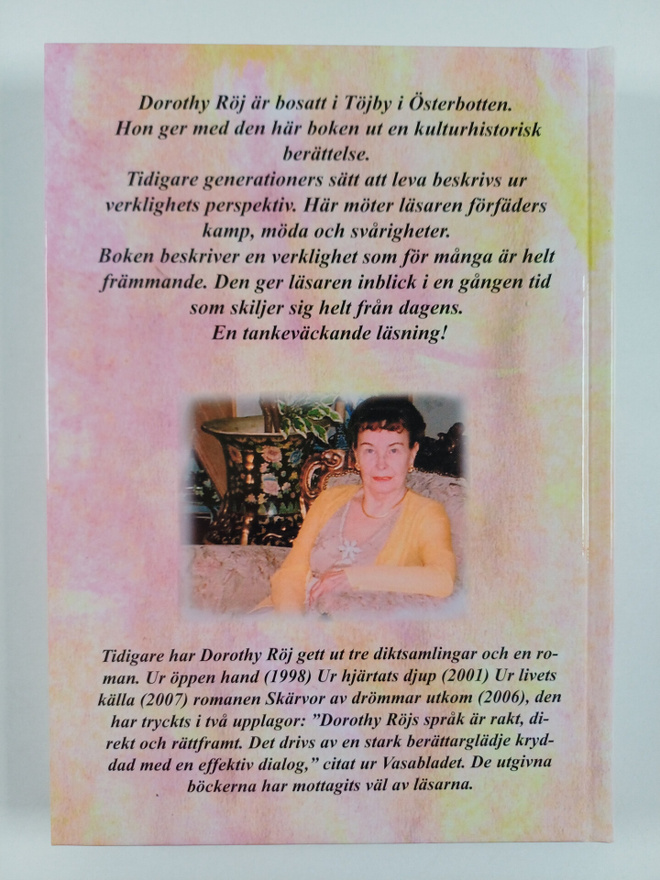 Dorothy Röj är bosatt i Töjby i Österbotten.
Hon ger med den här boken ut en kulturhistorisk
berättelse.
Tidigare generationers sätt att leva beskrivs ur
verklighets perspektiv. Här möter läsaren förfäders
kamp, möda och svårigheter.
Boken beskriver en verklighet som för många är helt
främmande. Den ger läsaren inblick i en gången tid
som skiljer sig helt från dagens.
En tankeväckande läsning!
Tidigare har Dorothy Röj gett ut tre diktsamlingar och en ro-
man. Ur öppen hand (1998) Ur hjärtats djup (2001) Ur livets
källa (2007) romanen Skärvor av drömmar utkom (2006), den
har tryckts i två upplagor: ”Dorothy Röjs språk är rakt, di-
rekt och rättframt. Det drivs av en stark berättarglädje kryd-
dad med en effektiv dialog,” citat ur Vasabladet. De utgivna
böckerna har mottagits väl av läsarna.